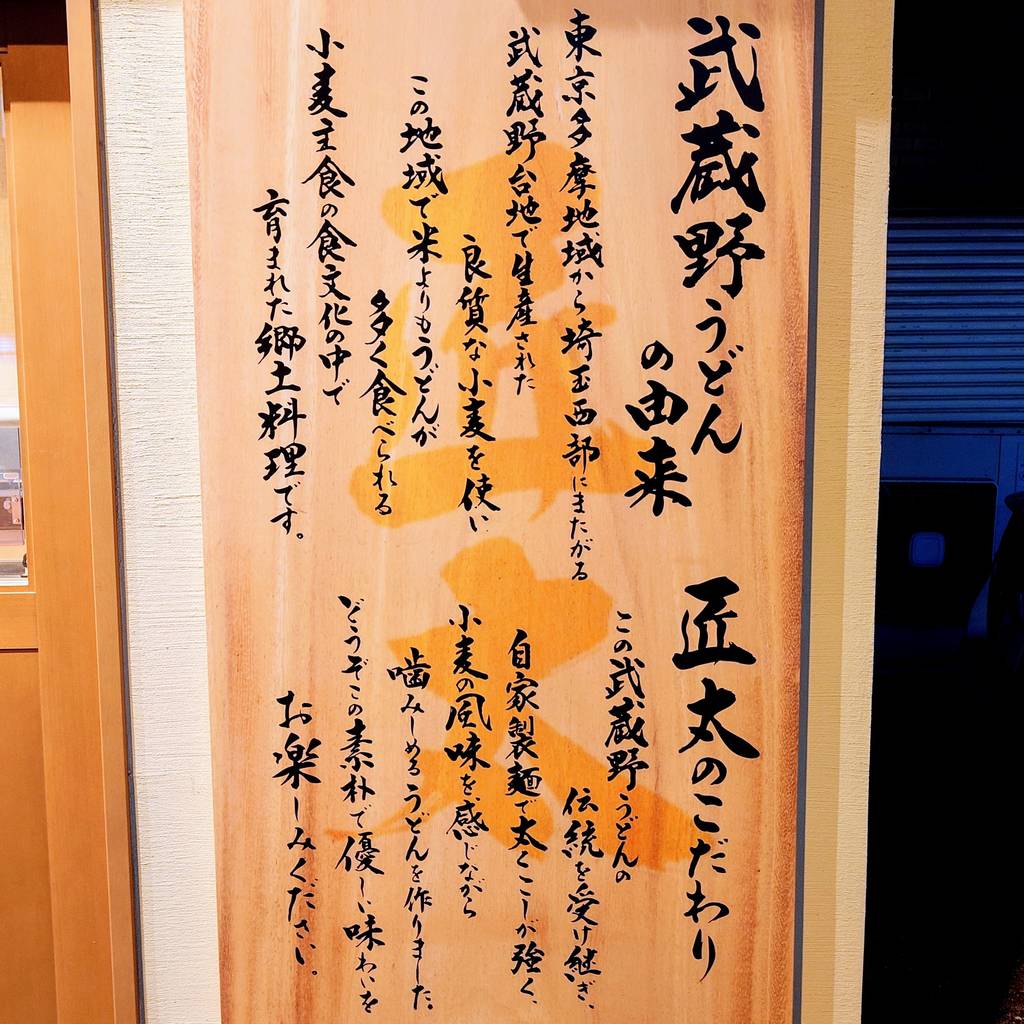 武蔵野うどん
の由来
東京多摩地域から埼玉西部にまたがる
武蔵野台地で生産された
良質な小麦を使い
この地域で米よりもうどんが
多く食べられる
小麦主食の食文化の中で
育まれた郷土料理です。
匠太のこだわり
この武蔵野うどんの
伝統を受け継ぎ、
自家製麺で太くこしが強く、
小麦の風味を感じながら
噛みしめるうどんを作りました。
どうぞこの素朴で優しい味わいを
お楽しみください。
匠太